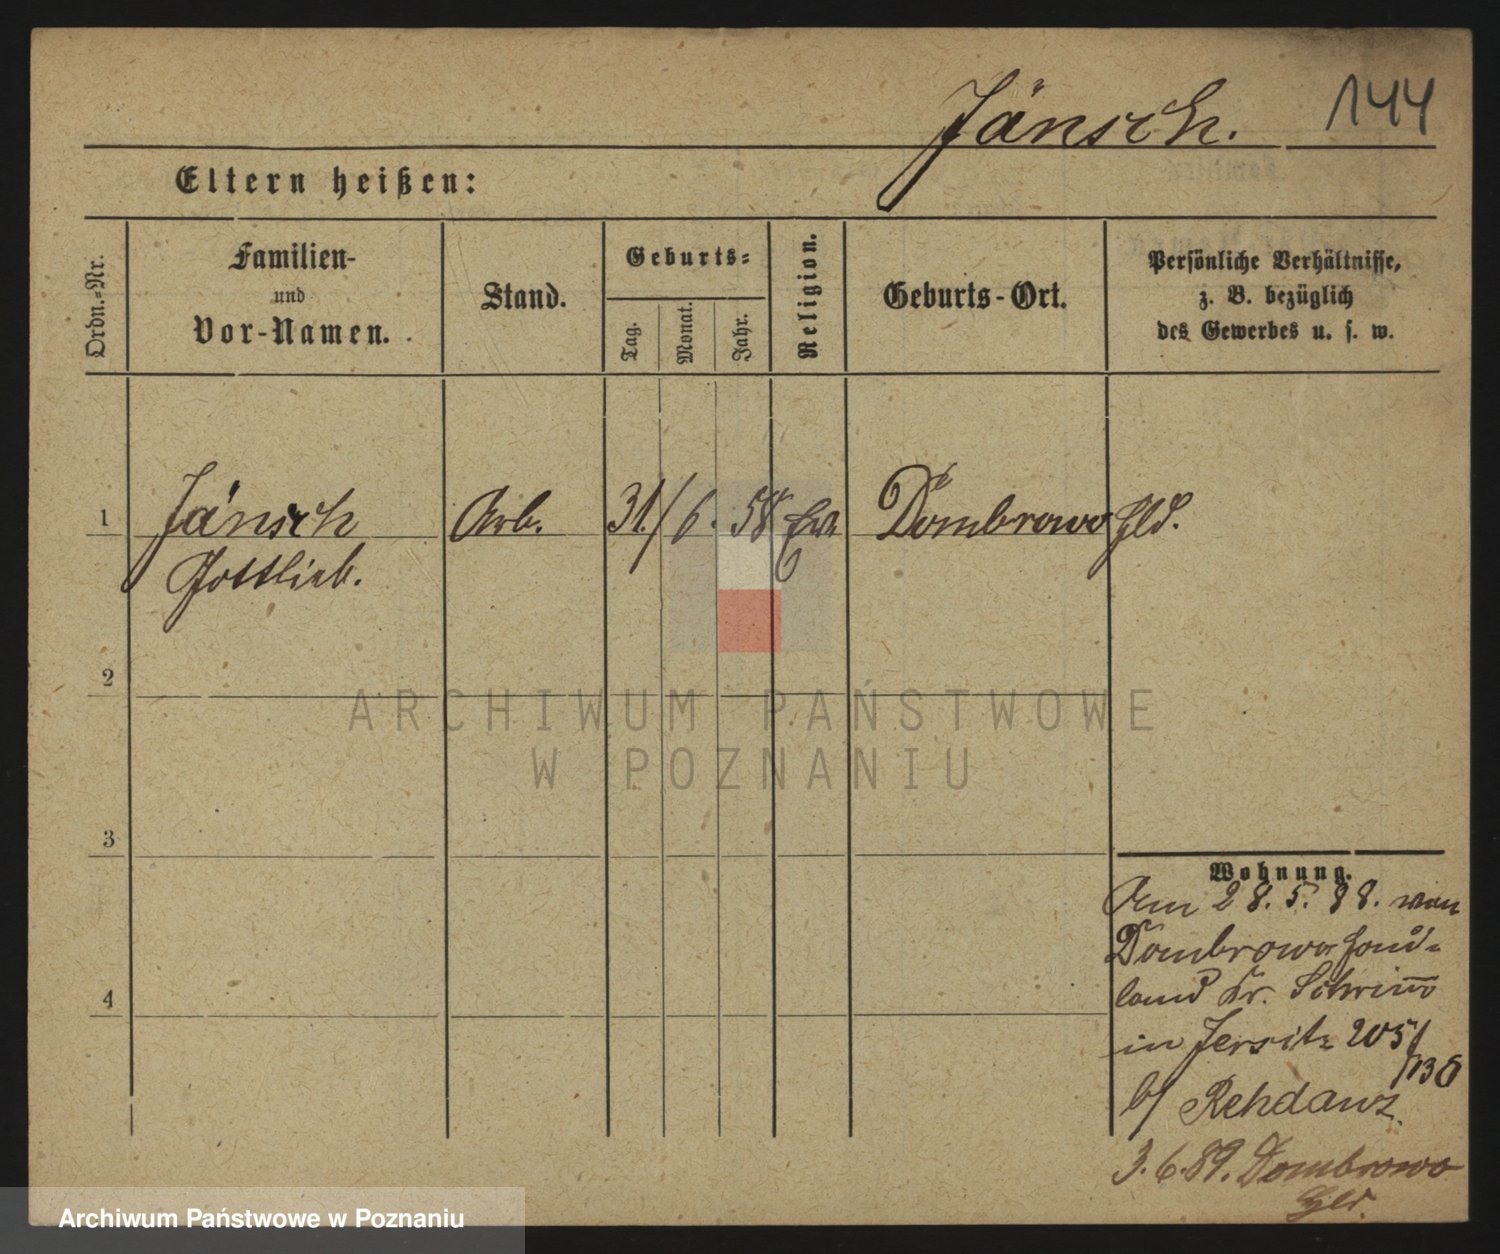 Jänsch. 144
Eltern heißen:
Ordn.-Nr.
Familien-
und
Vor-Namen.
Stand.
Geburts-
Tag.
Monat.
Jahr.
Religion.
Geburts-Ort.
Persönliche Verhältnisse,
z. B. bezüglich
des Gewerbes u. s. w.
1 Jänsch Arb. 31./6. 58 Ev. Dombrowo Hld.
Gottlieb.
2
3
4
ARCHIWUM PAŃSTWOWE
W POZNANIU
Wohnung.
Am 28.5.88. von
Dombrowo Haul-
land Kr. Schrimm
in Jersitz 205/
136
b/ Rehdanz
3.6.89. Dombrowo
Hld.
Archiwum Państwowe w Poznaniu